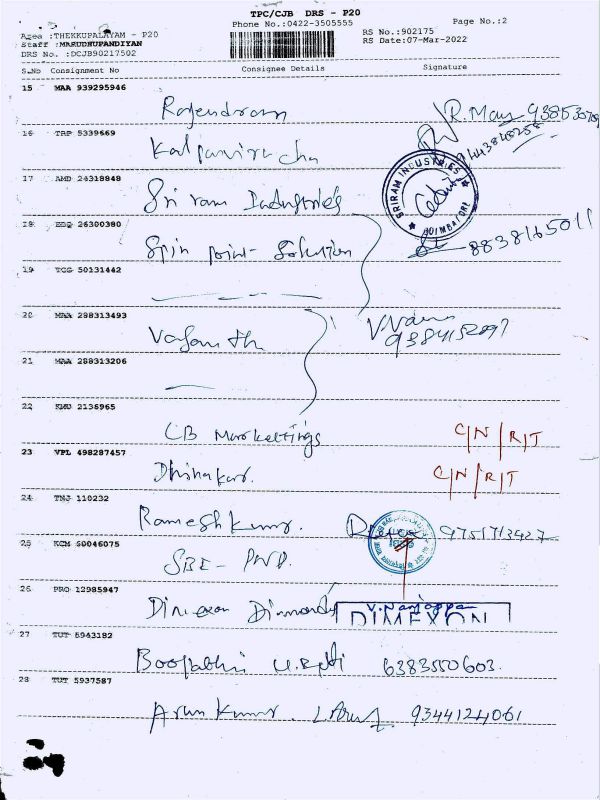 TPC/CJB DRS - P20
Phone No.:0422-3505555 Page No.:2
Area :THEKKUPALAYAM - P20 RS No.:902175
Staff :MARUDHUPANDIYAN RS Date:07-Mar-2022
DRS No. :DCJB90217502
S.No Consignment No Consignee Details Signature
15 MAA 939295946
Rajendran
16 TRP 5339669
17 AMD 24318848
Sri ram Industries SRIRAM INDUSTRIES COIMBATORE
18 26300380
Spin point Solution 8838165011
19 TCG 50131442
20 MAA 288313493
Vasanth
21 MAA 288313206
22 KMU 2136965
CB Marketings C/N/R/T
23 VPL 498287457
Dhinakar. C/N/R/T
24 TNJ 110232
Rameshkumar. 9751713427
25 KCM 60046075
26 PRO 12985947
DIMEXON
27 TUT 5943182
Boopathi 6383550603.
28 TUT 5937587
Arun Kumar. 9344124061